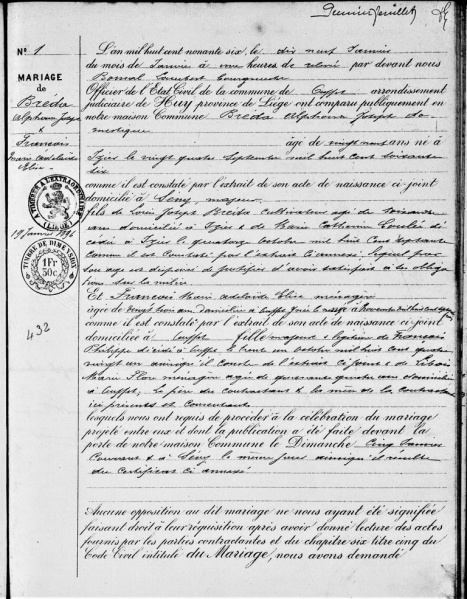 Premier feuillet
N° 1
MARIAGE
de
Breda
Alphonse Joseph
&
Francois
Marie Adelaïde
Elise
A TIMBRER A L'EXTRAORDINAIRE
(LIEGE)
19 Janvier 1896
TIMBRE DE DIMENSION
1 Fr
50 c.
432
L'an mil huit cent nonante six, le dix neuf Janvier
du mois de Janvier à heures de relevée par devant nous
Bonmal
Officier de l'Etat Civil de la commune de arrondissement
judiciaire de Huy province de Liége ont comparu publiquement en
notre maison Commune Breda Alphonse Joseph do-
mestique
âgé de vingt neuf ans né à
le vingt quatre Septembre mil huit cent soixante
six
comme il est constaté par l'extrait de son acte de naissance ci-joint
domicilié à majeur
fils de Louis Joseph Breda cultivateur âgé de soixante
ans domicilié à & de Marie Catherine dé-
cédée à le quatorze octobre mil huit cent septante
comme il est constaté par l'extrait ci annexé
son âge est dispensé de justifier d'avoir satisfait à ses obliga
tions sur la milice
Et Francois Marie Adelaïde Elise ménagère
agée de vingt trois ans domiciliée à
comme il est constaté par l'extrait de son acte de naissance ci-joint
domiciliée à fille majeure & légitime de Francois
Philippe décédé à le trente un octobre mil huit cent quatre
vingt un ainsi qu'il conste de l'extrait ci joint & de
Marie ménagère agée de quarante quatre ans domiciliée
à le père du Contractant & la mère de la Contractante
ici présents & Consentants
lesquels nous ont requis de procéder à la célébration du mariage
projeté entre eux et dont la publication a été faite devant la
porte de notre maison Commune le Dimanche cinq Janvier
Courant & à le même jour ainsi qu'il résulte
du certificat ci annexé
Aucune opposition au dit mariage ne nous ayant été signifiée
faisant droit à leur réquisition après avoir donné lecture des actes
fournis par les parties contractantes et du chapitre six titre cinq du
Code Civil intitulé du Mariage, nous avons demandé